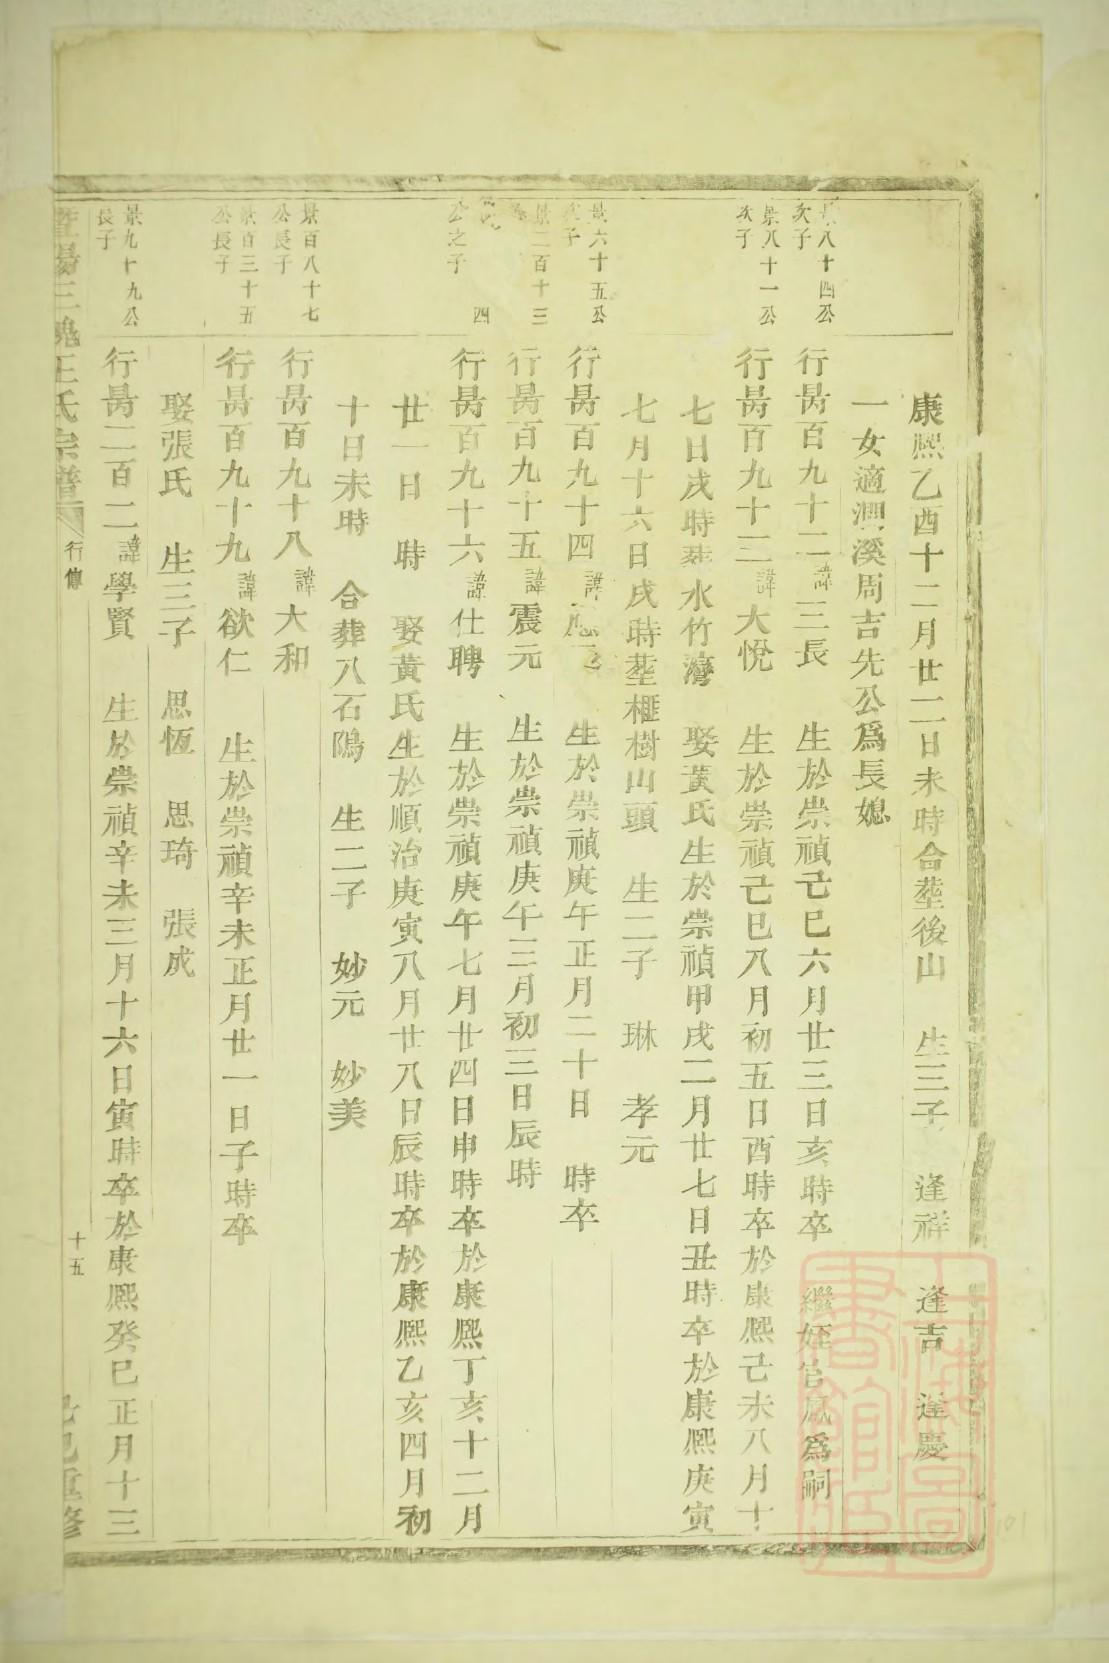 康熙乙酉十二月廿二日未時合塟後山 生三子 逢祥 逢吉 逢慶
一女適澗溪周吉先公爲長媳
景八十四公
次子
行昺百九十二諱三長 生於崇禎己巳六月廿三日亥時卒 繼姪官鳳爲嗣
景八十一公
次子
行昺百九十三諱大悅 生於崇禎己巳八月初五日酉時卒於康熙己未八月十
七日戌時葬水竹灣 娶黃氏生於崇禎甲戌二月廿七日丑時卒於康熙庚寅
七月十六日戌時塟榧樹山頭 生二子 琳 孝元
景六十五公
子
行昺百九十四諱 生於崇禎庚午正月二十日 時卒
景二百十三
行昺百九十五諱震元 生於崇禎庚午三月初三日辰時
四
公之子
行昺百九十六諱仕聘 生於崇禎庚午七月廿四日申時卒於康熙丁亥十二月
廿一日 時 娶黃氏生於順治庚寅八月廿八日辰時卒於康熙乙亥四月初
十日未時 合葬八石隖 生二子 妙元 妙美
景百八十七
公長子
行昺百九十八諱大和
景百三十五
公長子
行昺百九十九諱欲仁 生於崇禎辛未正月廿一日子時卒
娶張氏 生三子 思恆 思琦 張成
景九十九公
長子
行昺二百二諱學賢 生於崇禎辛未三月十六日寅時卒於康熙癸巳正月十三
暨陽三槐王氏宗譜 行傳 十五 己巳重修
上海圖書館藏